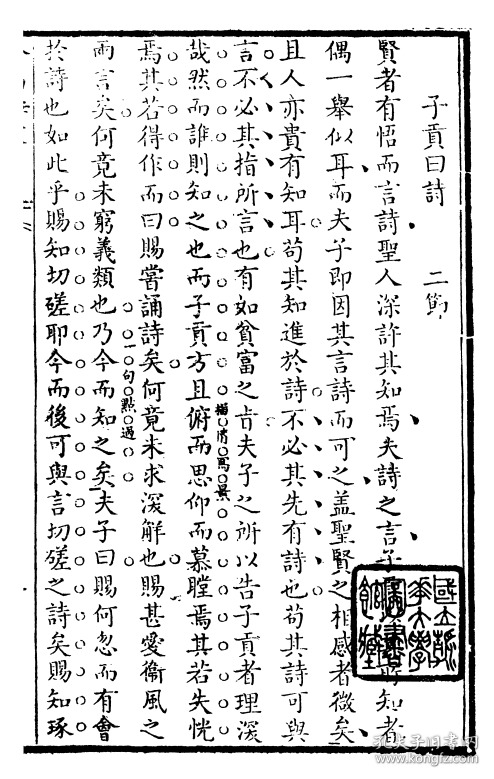 子貢曰詩 二節
賢者有悟而言詩聖人深許其知焉夫詩之言子知者
偶一舉似耳而夫子即因其言詩而可之盖聖賢之相感者微矣
且人亦貴有知耳苟其知進於詩不必其先有詩也苟其詩可與
言不必其指所言也有如貧富之旨夫子之所以告子貢者理深
描情寫景
哉然而誰則知之也而子貢方且俯而思仰而慕瞠焉其若失恍
焉其若得作而曰賜嘗誦詩矣何竟未求深解也賜甚愛衞風之
一句點過
兩言矣何竟未窮義類也乃今而知之矣夫子曰賜何忽而有會
於詩也如此乎賜知切磋耶今而後可與言切磋之詩矣賜知琢
國立
大學
孔夫子旧书网